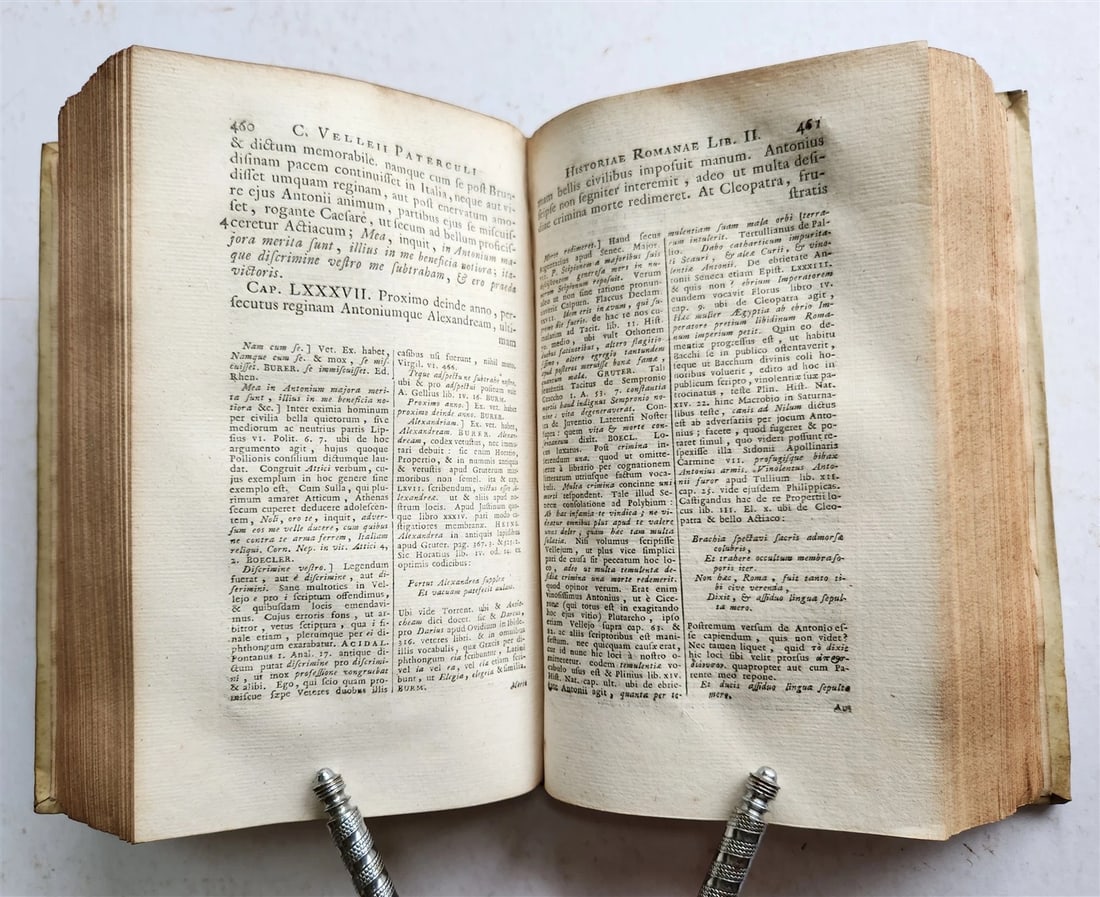 460 C. VELLEII PATERCULI
& dictum memorabile. namque cum se post Brun-
disinam pacem continuisset in Italia, neque aut vi-
disset umquam reginam, aut post enervatum amo-
re ejus Antonii animum, partibus ejus se miscuis-
set, rogante Caesare, ut secum ad bellum proficis-
4 ceretur Actiacum; Mea, inquit, in Antonium ma-
jora merita sunt, illius in me beneficia notiora; ita-
que discrimine vestro me subtraham, & ero praeda
victoris.
CAP. LXXXVII. Proximo deinde anno, per-
secutus reginam Antoniumque Alexandream, ulti-
mam
Nam cum se.] Vet. Ex. habet,
Namque cum se. & mox, se mis-
cuisset. BURER. se immiscuisset. Ed.
Rhen.
Mea in Antonium majora meri-
ta sunt, illius in me beneficia no-
tiora &c.] Inter eximia hominum
per civilia bella quietorum, sive
mediorum ac neutrius partis Lip-
sius VI. Polit. 6. 7. ubi de hoc
argumento agit, hujus quoque
Pollionis consilium dictumque lau-
dat. Congruit Attici verbum, cu-
jus exemplum in hoc genere sine
exemplo est. Cum Sulla, qui plu-
rimum amaret Atticum, Athenas
secum cuperet deducere adolescen-
tem, Noli, oro te, inquit, adver-
sum eos me velle ducere, cum quibus
ne contra te arma ferrem, Italiam
reliqui. Corn. Nep. in vit. Attici 4,
2. BOECLER.
Discrimine vestro.] Legendum
fuerat, aut e discrimine, aut di-
scrimini. Sane multoties in Vel-
lejo e pro i scriptum offendimus,
& quibusdam locis emendavi-
mus. Cujus erroris fons, ut ar-
bitror, vetus scriptura, qua i fi-
nale etiam, plerumque per ei di-
phthongum exarabatur. ACIDAL.
Pontanus I. Anal. 17. antique di-
ctum putat discrimine pro discrimi-
ni, ut mox professione congruebat
& alibi. Ego, qui scio quam pro-
miscue sæpe Veteres duobus illis
casibus usi fuerunt, nihil muto.
Virgil. VI. 468.
Teque adspectune subtrahe nostro,
ubi & pro adspectui positum vult
A. Gellius lib. IV. 16. BURM.
Proximo anno.] Ex. vet. habet
proximo deinde anno. BURER.
Alexandriam.] Ex. vet. habet
Alexandream. BURER. Alexan-
dream, codex vetustus, nec immu-
tari debuit: sic enim Horatio,
Propertio, & in nummis antiquis
& vetustis apud Gruterum mar-
moribus non semel. ita & cap.
LXVII. scribendum, victus sub A-
lexandrea. ut & aliis apud no-
strum locis. Apud Justinum quo-
que libro XXXIV. pari modo ca-
stigatiores membranæ. HEINS.
Alexandrea in antiquis lapidibus
apud Gruter. pag. 167. 3. &
Sic Horatius lib. IV. od. 14. ex
optimis codicibus:
Portus Alexandrea supplex
Et vacuam patefecit aulam.
Ubi vide Torrent. ubi & Antio-
cheam dici docet. sic & Dareus,
pro Darius apud Ovidium in Ibide.
316. veteres libri. & in omnibus
illis vocabulis, quæ Græcis per di-
phthongum εια scribuntur, Latini
vel ia vel ea, vel eia etiam scri-
bunt, ut Elegia, elegeia & similia.
BURM.
Morte
HISTORIAE ROMANAE LIB. II. 461
mam bellis civilibus imposuit manum. Antonius
seipse non segniter interemit, adeo ut multa desi-
diae crimina morte redimeret. At Cleopatra, fru-
stratis
Morte redimeret.] Haud secus
argumentatur apud Senec. Major.
VII. P. Scipionem a majoribus suis
desciscentem generosa mors in nu-
merum Scipionum reposuit. Verum
ideo ut non sine ratione pronun-
tiaverit Calpurn. Flaccus Declam.
XXVII. Idem eris in avum, qui fu-
turus die fueris. de hac te nos cu-
mulatim ad Tacit. lib. II. Hist.
50. medio, ubi vult Othonem
duobus facinoribus, altero flagitio-
sissimo, altero egregio tantundem
apud posteros meruisse bonæ famæ,
quantum malæ. GRUTER. Tali
sententia Tacitus de Sempronio
Graccho I. A. 53. 7. constantia
mortis haud indignus Sempronio no-
mine: vita degeneraverat. Con-
tra de Juventio Laterensi Noster
supra: quem vita & morte con-
sentaneum dixit. BOECL. Lo-
cus luxatus. Post crimina in-
serendum una. quod ut omitte-
retur a librario per cognationem
literarum utriusque factum voca-
buli. Multa crimina concinne uni
morti respondent. Tale illud Se-
necæ consolatione ad Polybium:
Ab hac infamia te vindica; ne vi-
deatur omnibus plus apud te valere
unus dolor, quam hæc tam multa
solatia. Nisi volumus scripsisse
Vellejum, ut plus vice simplici
pari de causa sit peccatum hoc lo-
co, adeo ut multa temulenta de-
sidiæ crimina una morte redemerit.
quod opinor verum. Erat enim
vinosissimus Antonius, ut e Cice-
rone (qui totus est in exagitando
hoc ejus vitio) Plutarcho, ipto
etiam Vellejo supra cap. 63. &
82. ac aliis scriptoribus est mani-
festum. nec quicquam causæ erat,
cur id nunc hic loci a nostro o-
mitteretur. eodem temulentiæ vo-
cabulo usus est & Plinius lib. XIV.
Hist. Nat. cap. ult. ubi de ebrie-
tate Antonii agit, quanta per te-
mulentiam suam mala orbi terra-
rum intulerit. Tertullianus de Pal-
lio. Dabo catharticum impurita-
ti Scauri, & aleæ Curii, & vino-
lentiæ Antonii. De ebrietate An-
tonii Seneca etiam Epist. LXXXIII.
& quis non? ebrium Imperatorem
eundem vocavit Florus libro IV.
cap. 9. ubi de Cleopatra agit,
Hæc mulier Ægyptia ab ebrio Im-
peratore pretium libidinum Roma-
num imperium petit. Quin eo de-
mentiæ progressus est, ut habitu
Bacchi se in publico ostentaverit,
seque ut Bacchum divinis coli ho-
noribus voluerit, edito ad hoc in
publicum scripto, vinolentiæ suæ pa-
trocinatus, teste Plin. Hist. Nat.
XIV. 22. hinc Macrobio in Saturna-
libus teste, canis ad Nilum dictus
est ab adversariis per jocum Anto-
nius; facete, quod sugeret & po-
taret simul, quo videri possunt re-
spexisse illa Sidonii Apollinaris
Carmine VII. profugisque bibax
Antonius armis. Vinolentus Anto-
nii furor apud Tullium lib. XII.
cap. 25. vide ejusdem Philippicas.
Castigandus hac de re Propertii lo-
cus lib. III. El. X. ubi de Cleo-
patra & bello Actiaco:
Brachia spectavi sacris admorsa
colubris,
Et trahere occultum membra so-
poris iter.
Non hæc, Roma, fuit tanto ti-
bi cive verenda,
Dixit, & assiduo lingua sepul-
ta mero.
Postremum versum de Antonio es-
se capiendum, quis non videt?
Nec tamen liquet, quid τὸ dixit
hic loci sibi velit prorsus
quapropter aut cum Pa-
rente meo repone.
Et ducis assiduo lingua sepulta
mero,
Aut